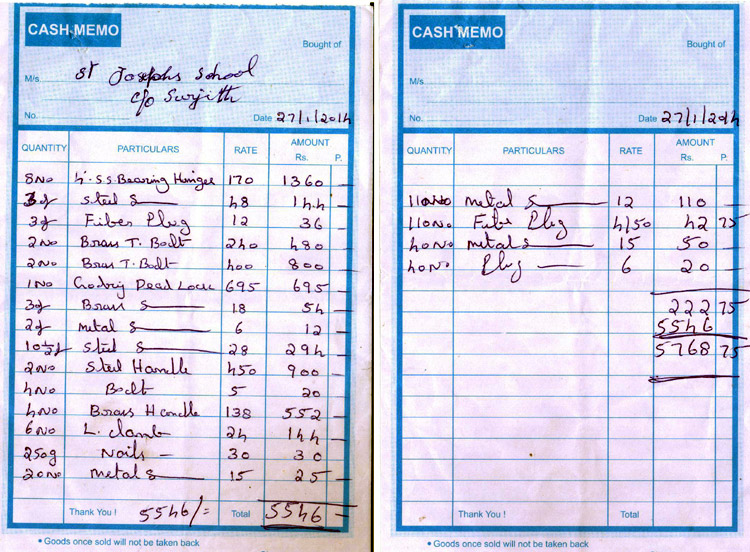 CASH MEMO
Bought of
M/s St Josephs School
c/o Surjith
No. Date 27/1/2014
QUANTITY PARTICULARS RATE AMOUNT
Rs. P.
8No 4" S.S Bearing Hinges 170 1360 —
3g Steel S 48 144 —
3g Fiber Plug 12 36 —
2No Brass T. Bolt 240 480 —
2No Brass T. Bolt 400 800 —
1No Godrej Dead Lock 695 695 —
3g Brass S 18 54 —
2g Metal S 6 12 —
10 1/2g Steel S 28 294 —
2No Steel Handle 450 900 —
4No Bolt 5 20
4No Brass Handle 138 552 —
6No L. Clamb 24 144 —
250g Nails — 30 30 —
20No Metal S 15 25 —
Thank You ! 5546/= Total 5546 —
• Goods once sold will not be taken back
CASH MEMO
Bought of
M/s
No. Date 27/1/2014
QUANTITY PARTICULARS RATE AMOUNT
Rs. P.
110No Metal S 12 110 —
110No Fiber Plug 4/50 42 75
40No Metal S 15 50 —
40No Plug — 6 20 —
222 75
5546
5768 75
Thank You ! Total
• Goods once sold will not be taken back